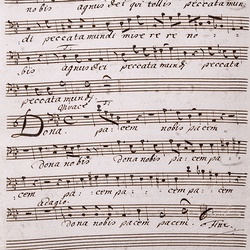 nobis agnus dei qui tollis peccata mun
di peccata mundi miserere no
bis agnus dei peccata mundj
peccata mundj
Vivace
Dona pacem nobis pacem
dona nobis dona nobis pa
cem pa cem pa cem pa
adagio
dona nobis pacem pacem Fine